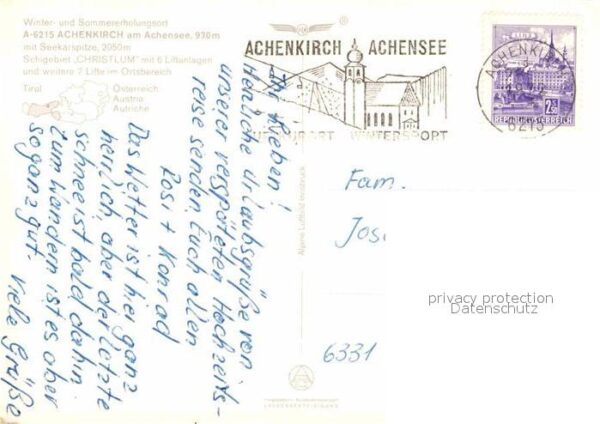 Winter- und Sommererholungsort
A-6215 ACHENKIRCH am Achensee, 930m
mit Seekarspitze, 2050m
Schigebiet „CHRISTLUM" mit 6 Liftanlagen
und weitere 2 Lifte im Ortsbereich
Tirol
Österreich
Austria
Autriche
ACHENKIRCH ACHENSEE
WINTERSPORT
ACHENKIRCH
6215
2S
REPUBLIK ÖSTERREICH
Ihr Lieben!
Herzliche Urlaubsgrüße von
unserer verspäteten Hochzeits-
reise senden Euch allen
Rosi + Konrad
Das Wetter ist hier ganz
herrlich, aber der letzte
Schnee ist bald dahin
zum Wandern ist es aber
so ganz gut. Viele Grüße
Alpine Luftbild Innsbruck
Fam.
Josi
6331
privacy protection
Datenschutz